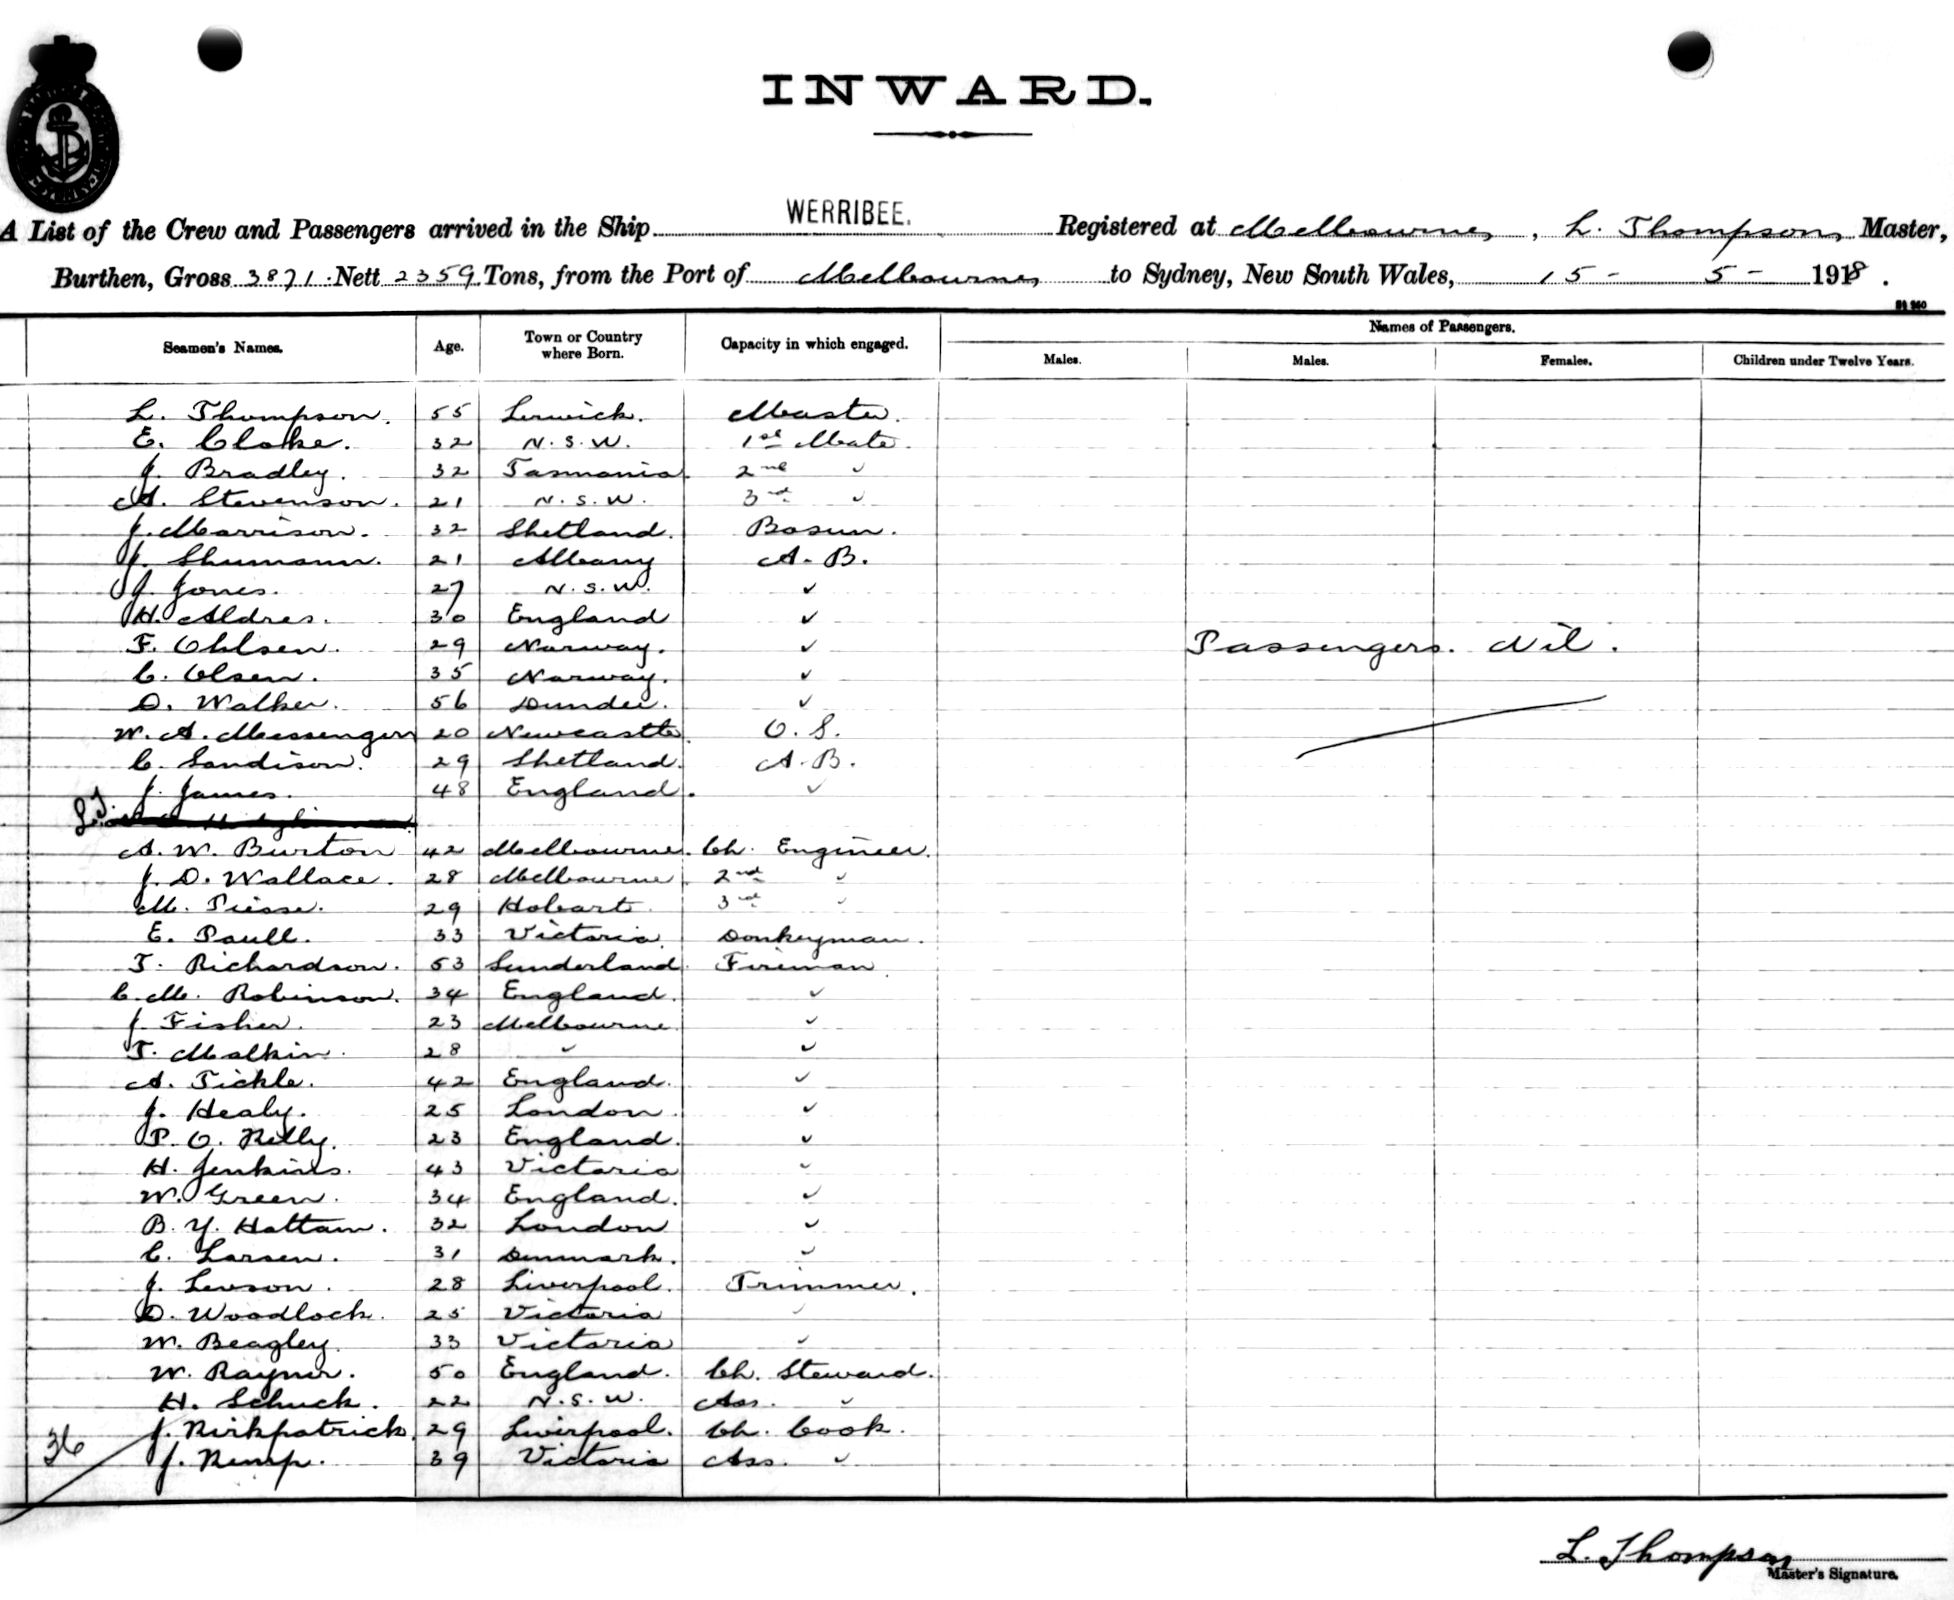 INWARD.
A List of the Crew and Passengers arrived in the Ship WERRIBEE. Registered at Melbourne, L. Thompson, Master,
Burthen, Gross 3871 Nett 2359 Tons, from the Port of Melbourne to Sydney, New South Wales, 15 - 5 - 1918.
Seamen's Names. Age. Town or Country where Born. Capacity in which engaged. Names of Passengers.
Males. Males. Females. Children under Twelve Years.
L. Thompson. 55 Lerwick. Master.
E. Cloke. 32 N.S.W. 1st Mate.
J. Bradley. 32 Tasmania. 2nd "
A. Stevenson. 21 N.S.W. 3rd "
J. Morrison. 32 Shetland. Bosun.
J. Shumann. 21 Albany A.B.
J. Jones. 27 N.S.W. "
H. Aldres. 30 England "
F. Ohlsen. 29 Norway. " Passengers. Nil.
C. Olsen. 35 Norway. "
D. Walker. 56 Dundee. "
W. A. Messenger 20 Newcastle O.S.
C. Sandison. 29 Shetland. A.B.
J. James. 48 England. "
L.T.
A. W. Burton 42 Melbourne. Ch. Engineer.
J. D. Wallace. 28 Melbourne. 2nd "
M. Piesse. 29 Hobart. 3rd "
E. Paull. 33 Victoria. Donkeyman.
T. Richardson. 53 Sunderland. Fireman.
C. M. Robinson. 34 England. "
J. Fisher. 23 Melbourne. "
T. Malkin. 28 " "
A. Tickle. 42 England. "
J. Healy. 25 London. "
P. O. Kelly. 23 England. "
H. Jenkins. 43 Victoria "
W. Green. 34 England. "
B. Y. Hattam. 32 London "
C. Larsen. 31 Denmark. "
J. Lewson. 28 Liverpool. Trimmer.
D. Woodlock. 25 Victoria "
W. Beagley. 33 Victoria "
W. Rayner. 50 England. Ch. Steward.
H. Schuck. 22 N.S.W. Ass. "
J. Kirkpatrick. 29 Liverpool. Ch. Cook.
36 J. Kemp. 39 Victoria Ass. "
L. Thompson
Master's Signature.